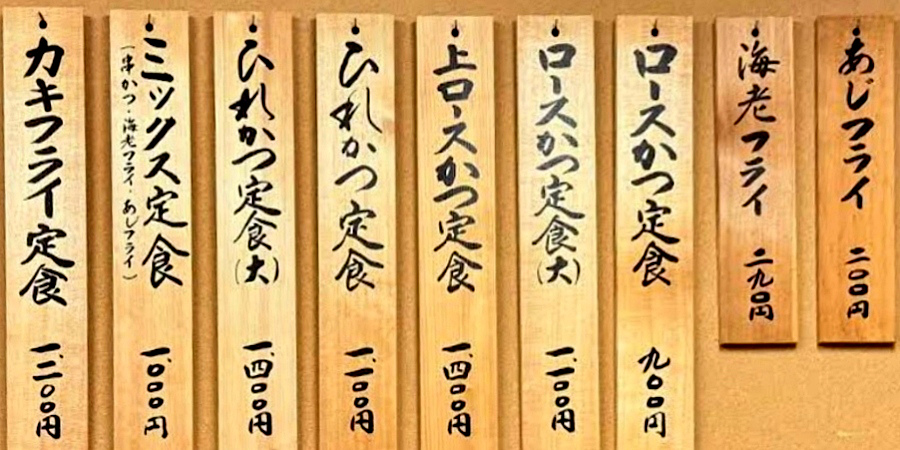 あじフライ 二〇〇円
海老フライ 二九〇円
ロースかつ定食 九〇〇円
ロースかつ定食(大) 一、一〇〇円
上ロースかつ定食 一、四〇〇円
ひれかつ定食 一、一〇〇円
ひれかつ定食(大) 一、四〇〇円
ミックス定食 一、〇〇〇円
(串かつ・海老フライ・あじフライ)
カキフライ定食 一、三〇〇円